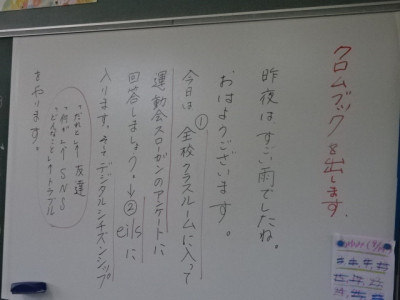 クロムブックを出します。
昨夜はすごい雨でしたね。
おはようございます。
今日は①全校クラスルームに入って
運動会スローガンのアンケートに
回答しましょう。→②eilsに
入ります。デジタルシチズンシップ
をやります。
友達
SNS
トラブル